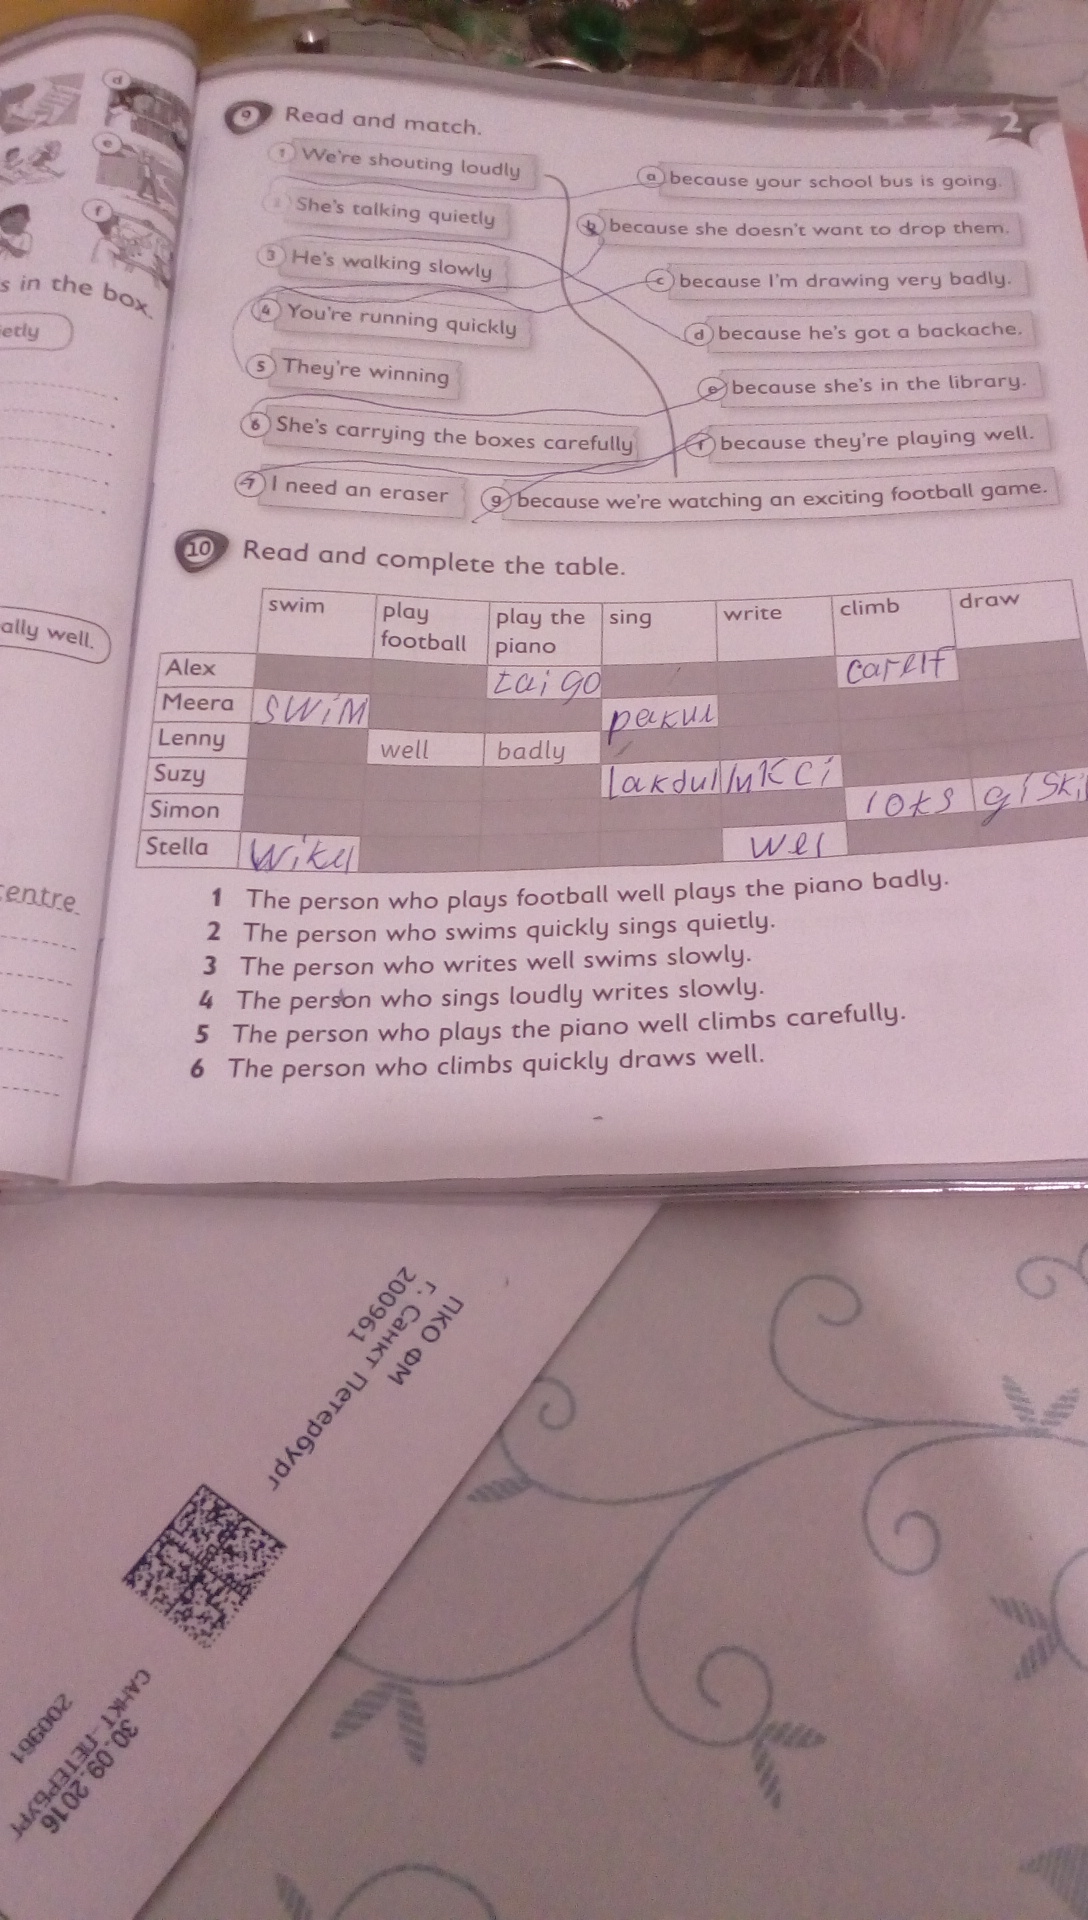 d
e
f
s in the box.
etly
ally well.
centre.
2
9 Read and match.
1 We're shouting loudly
She's talking quietly
3 He's walking slowly
4 You're running quickly
5 They're winning
6 She's carrying the boxes carefully
7 I need an eraser
a because your school bus is going.
b because she doesn't want to drop them.
c because I'm drawing very badly.
d because he's got a backache.
e because she's in the library.
f because they're playing well.
g because we're watching an exciting football game.
10 Read and complete the table.
swim play football play the piano sing write climb draw
Alex taigo carelf
Meera swim
Lenny well badly
Suzy
Simon ioks
Stella wel
1 The person who plays football well plays the piano badly.
2 The person who swims quickly sings quietly.
3 The person who writes well swims slowly.
4 The person who sings loudly writes slowly.
5 The person who plays the piano well climbs carefully.
6 The person who climbs quickly draws well.
ПКО ФМ
г. Санкт Петербург
200961
САНКТ-ПЕТЕРБУРГ
30.09.2016
200961